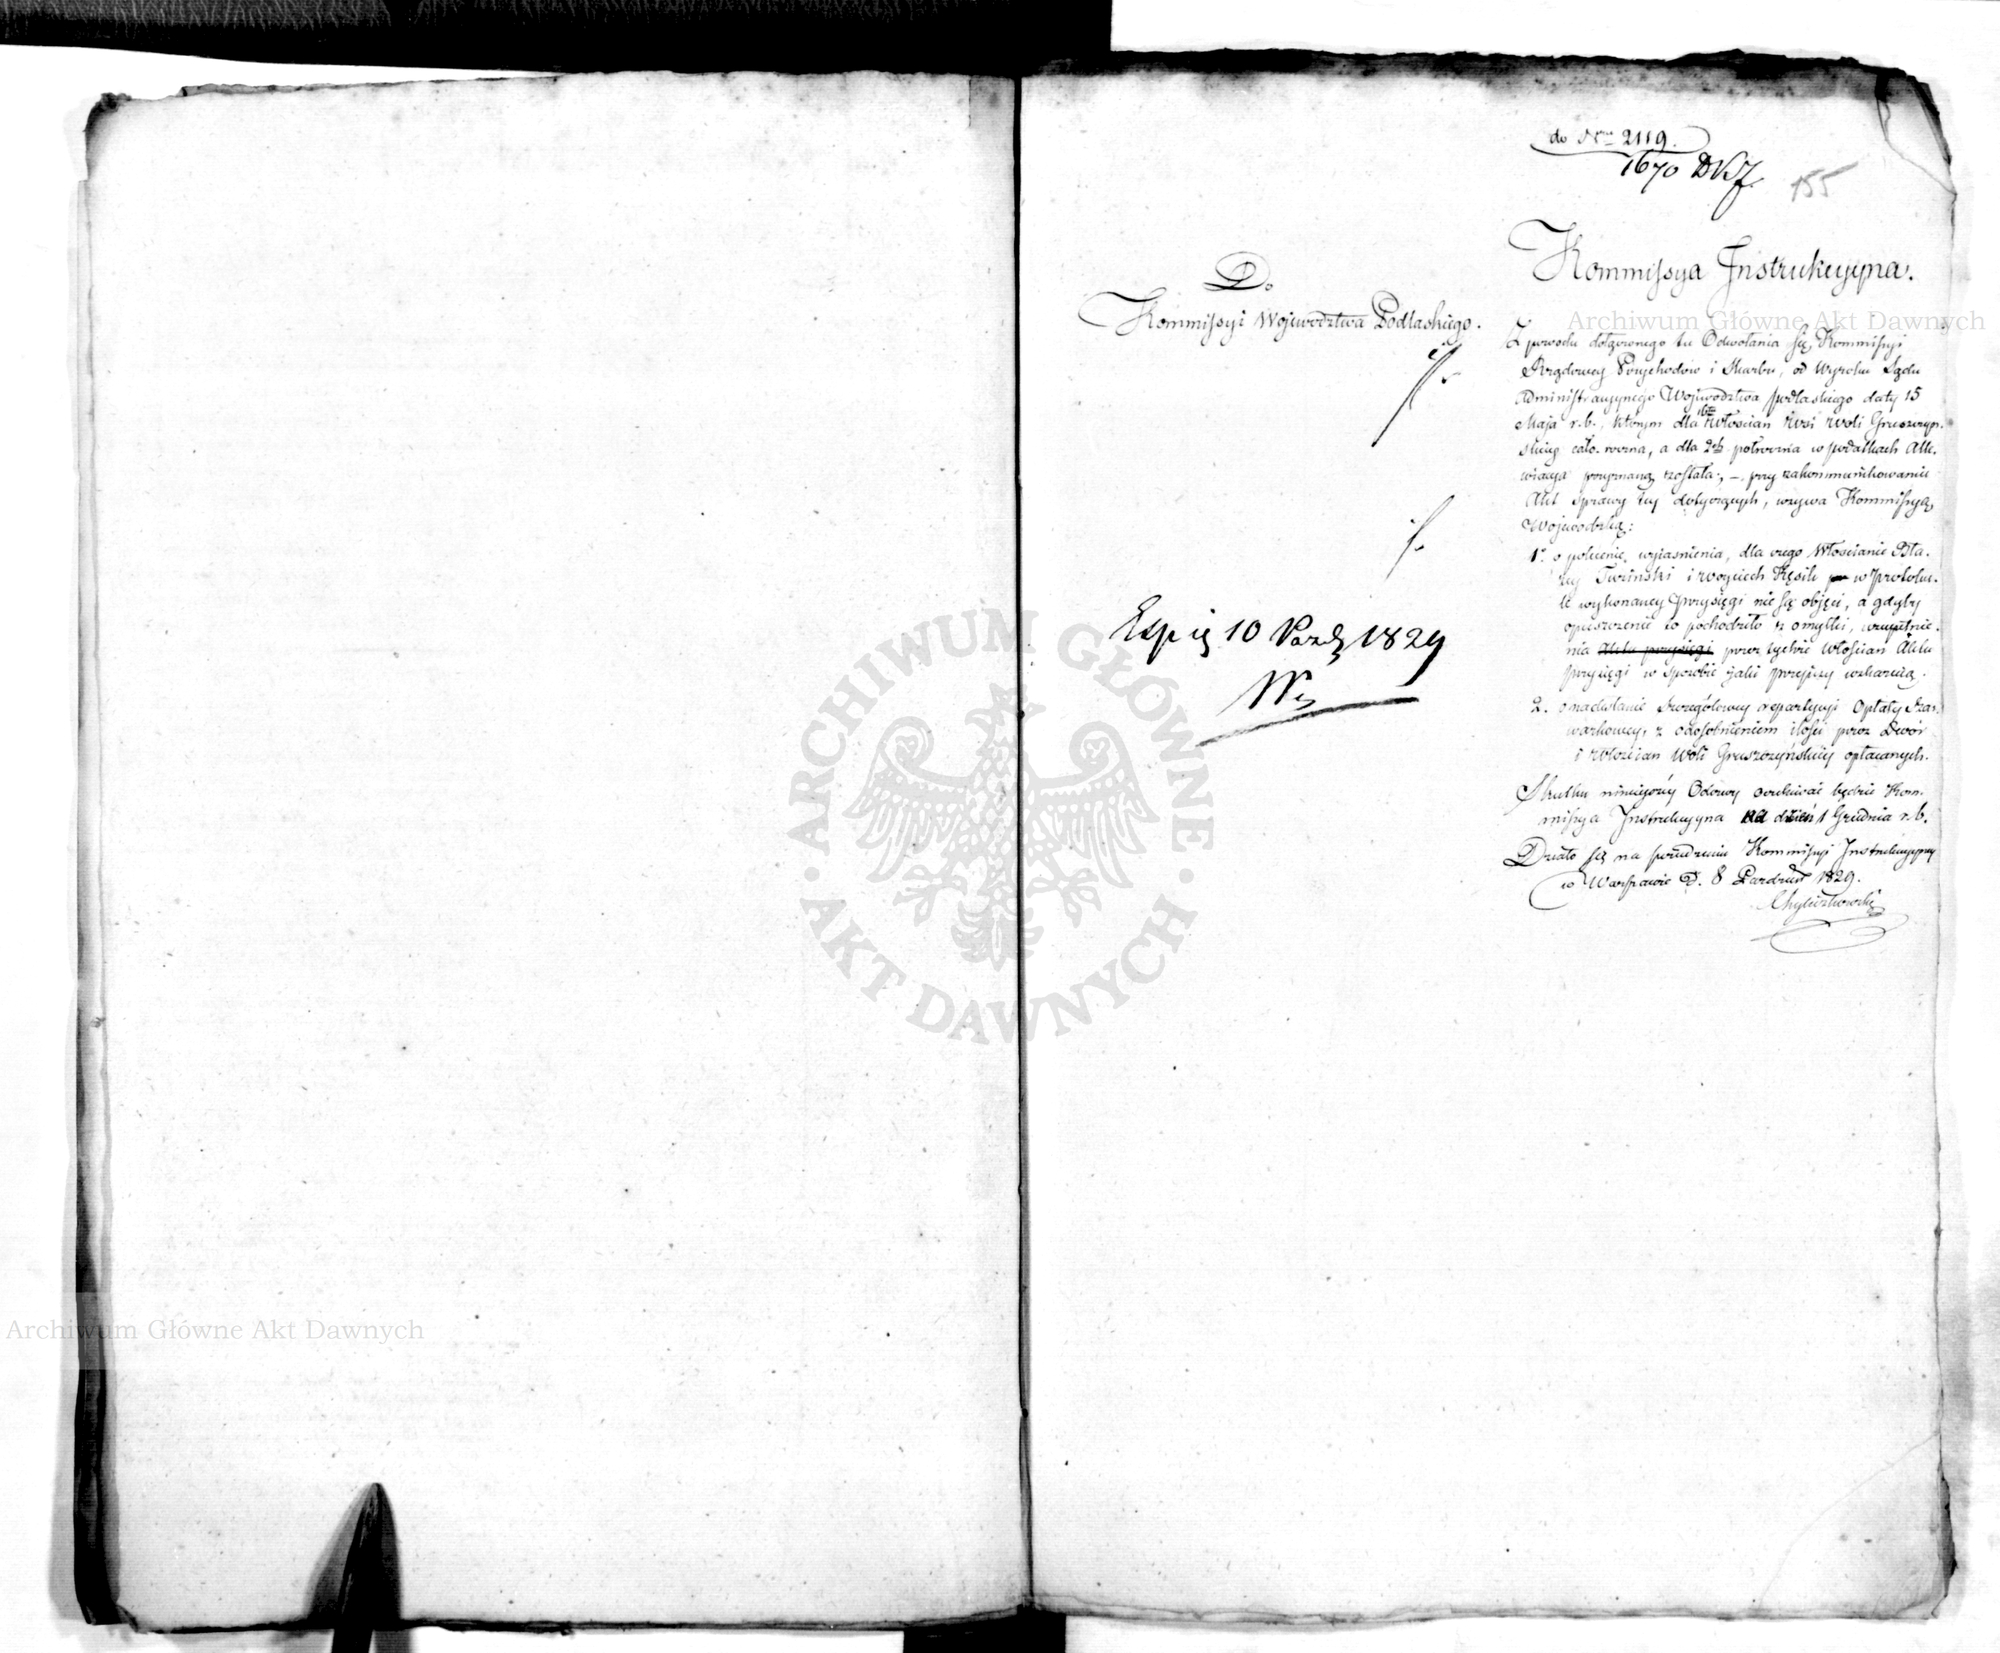 do Nru 2119.
1670 DKJ
155
Do
Kommissyi Województwa Podlaskiego.
Exp 10 Paźdz 1829
Kommissya Instrukcyjna.
Z powodu dołączonego tu Odwołania się Kommissyi
Rządowey Przychodów i Skarbu, od Wyroku Sądu
Administracyjnego Województwa Podlaskiego daty 15
Maja r.b., którym dla 16tu Włościan Wsi Woli Gruszczyń.
skiey cało-roczna, a dla 2ch półroczna w podatkach Alle.
wiacya przyznaną została; – przy zakommunikowaniu
Akt sprawy tey dotyczących, wzywa Kommissyą
Wojewódzką:
1. o polecenie wyjaśnienia, dla czego Włościanie Bła.
żey Turiński i Woyciech Kęsik w Protokul.
le wykonaney Przysięgi nie są objęci, a gdyby
opuszczenie to pochodziło z omyłki, uzupełnie.
nia Aktu przysięgi przez tychże Włościan Aktu
przysięgi w sposobie jaki przepisy wskazują.
2. o nadesłanie szczegółowey repartycyi Opłaty Szar.
warkowey, z odosobnieniem ilości przez Dwór
i Włościan Woli Gruszczyńskiey opłacanych.
Skutku niniejszey Odezwy oczekiwać będzie Kom.
missya Instrukcyjna na dzień 1 Grudnia r.b.
Działo się na posiedzeniu Kommissyi Instrukcyjney
w Warszawie D. 8 Paździer 1829.
Chyliczkowski
ARCHIWUM GŁÓWNE
AKT DAWNYCH
Archiwum Główne Akt Dawnych
Archiwum Główne Akt Dawnych